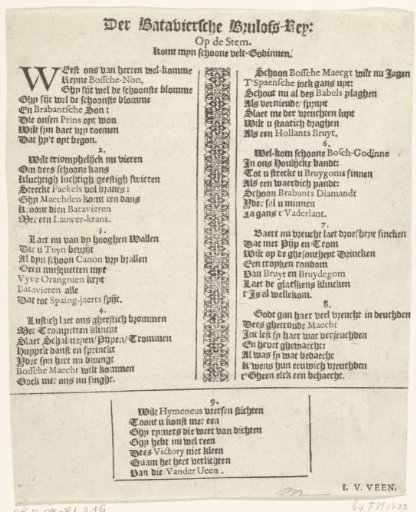 Der Bataviersche Bruloss-Rey:
Op de Stem.
Komt myn schoone velt-Godinnen.
WEest ons van herten wel-komme
Reyne Bossche-Non,
Ghy sijt wel de schoonste blomme
Ghy sijt wel de schoonste blomme
En Brabantsche Son:
Die onsen Prins opt won
Wilt syn daet vry roemen
Dat hy't opt begon.
2.
Wilt triomphelijck nu vieren
Om dees schoone kans
Kluchtigh luchtigh geestigh swieren
Streckt Fackels vol brants:
Ghy Maechden komt ten dans
Kroont dien Batavieren
Met een Lauwer-krans.
3.
Laet nu van dy hooghen Wallen
Die u Tuyn bevrijt
Al dyn schoon Canon vry brallen
Geen musquetten myt
Vyve Orangnien kryt
Batavieren alle
Dat tot Spaing-jaerts spijt.
4.
Lustich laet ons gheestich brommen
Met Trompetten klinckt
Slaet Schalmeyen/ Pypen/ Trommen
Huppelt danst en springht
Yder syn hert nu dwingt
Bossche Maecht wilt kommen
Goek met ons nu singht.
Schoon Bossche Maecgt wilt nu Jagen
T'Spaensche jock gans uyt:
Schout nu al des Babels plaghen
Als verniende spruyt
Slaet me der vreuchten lupt
Wilt u staatich draghen
Als een Hollants Bruyt.
6.
Wel-kom schoone Bosch-Godinne
In ons Houlijckx bandt:
Tot u streckt u Bruygoms sinnen
Als een waerdich pandt:
Schoon Brabants Diamandt
Yder sal u minnen
Ja gans t'Vaderlant.
7.
Baert nu vreucht laet droefheyt sincken
Dat met Pijp en Trom
Wilt op de ghesontheyt Drincken
Een troyken rondom
Van Bruyt en Bruydegom
Laet de glaeskens klincken
t'Is al wellekom.
8.
Godt gun haer veel vreucht in deuchden
Dees ghetroude Maecht
Int lest sy haer wat verheuchden
En hevet ghewaecht:
Al was sp wat bedaecht
K'wens hun eeuwich vreuchden
t'Gheen elck een behaechе.
9.
Wilt Hymeneus veersen stichten
Toont u konst met een
Ghy rymers die weet van dichten
Ghy hebt nu wel reen
Dees Victory niet kleen
Quam het hert verlichten
Van die/ Vander Veen.
I. V. VEEN.